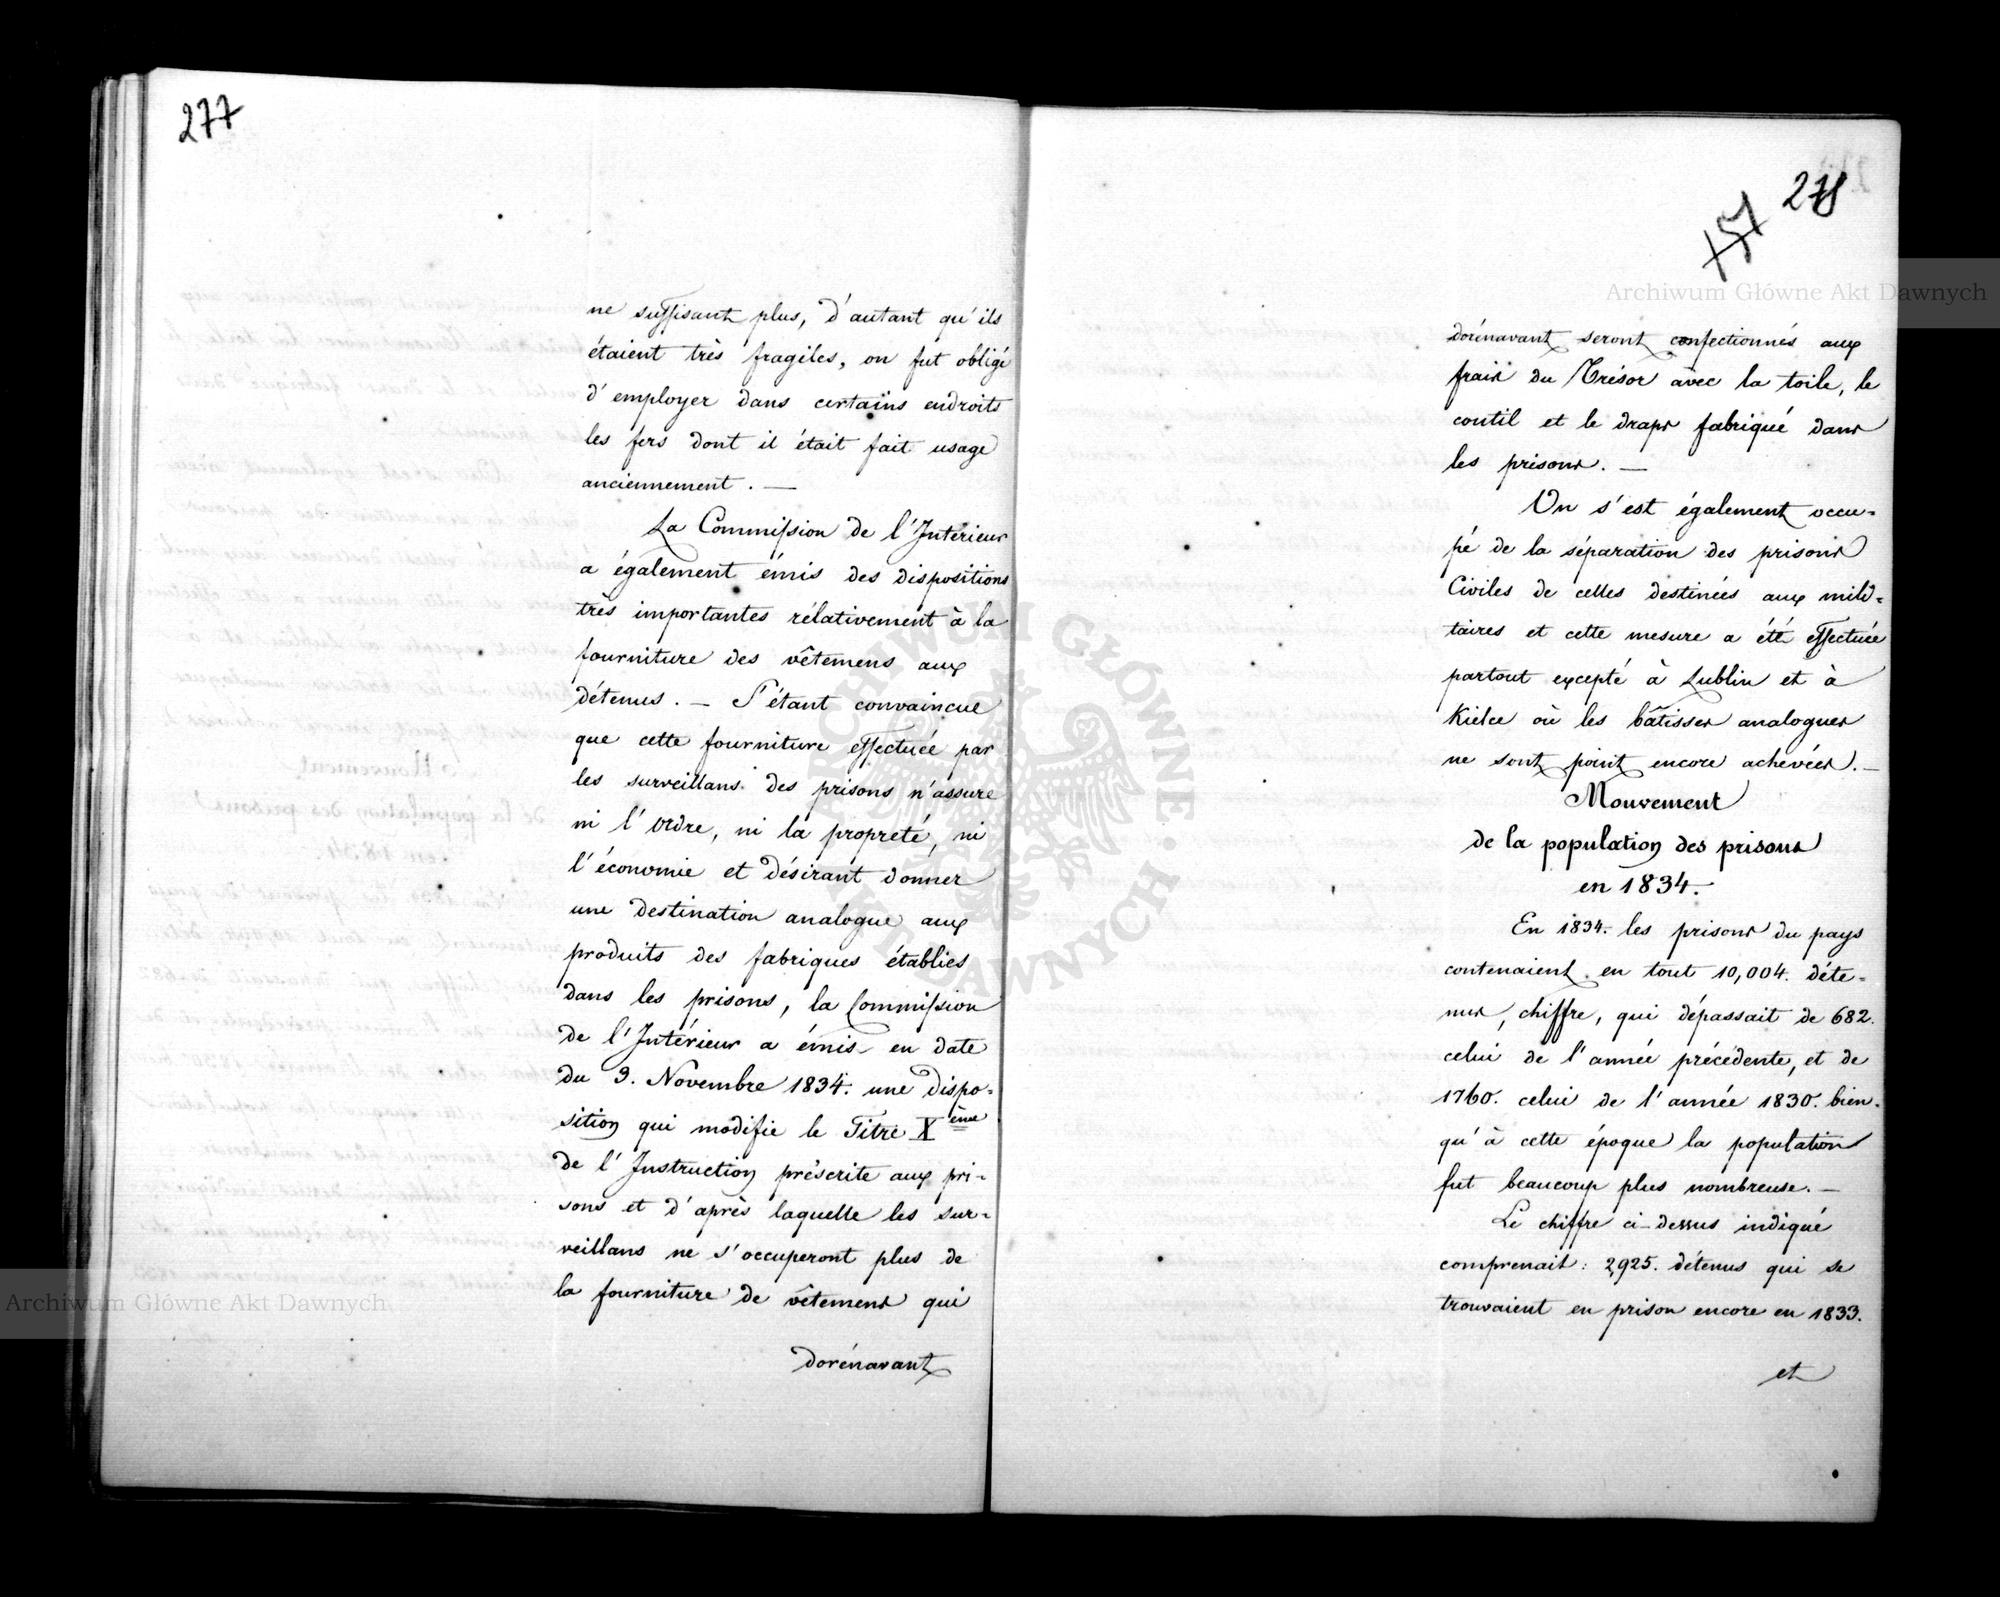 277
ne suffisant plus, d'autant qu'ils
étaient très fragiles, on fut obligé
d'employer dans certains endroits
les fers dont il était fait usage
anciennement. —
La Commission de l'Intérieur
a également émis des dispositions
très importantes rélativement à la
fourniture des vêtemens aux
détenus. — S'étant convaincue
que cette fourniture effectuée par
les surveillans des prisons n'assure
ni l'ordre, ni la propreté, ni
l'économie et désirant donner
une destination analogue aux
produits des fabriques établies
dans les prisons, la Commission
de l'Intérieur a émis en date
du 3. Novembre 1834. une dispo-
sition qui modifie le Titre Xème
de l'Instruction préscrite aux pri-
sons et d'après laquelle les sur-
veillans ne s'occuperont plus de
la fourniture de vêtemens qui
dorénavant
278
157
dorénavant seront confectionnés aux
frais du Trésor avec la toile, le
coutil et le draps fabriqué dans
les prisons. —
On s'est également occu-
pé de la séparation des prisons
Civiles de celles destinées aux mili-
taires et cette mesure a été effectuée
partout excepté à Lublin et à
Kielce où les bâtisses analogues
ne sont point encore achevées. —
Mouvement
de la population des prisons
en 1834.
En 1834. les prisons du pays
contenaient en tout 10,004. déte-
nus, chiffre, qui dépassait de 682.
celui de l'année précédente, et de
1760. celui de l'année 1830. bien-
qu'à cette époque la population
fut beaucoup plus nombreuse. —
Le chiffre ci-dessus indiqué
comprenait: 2,925. détenus qui se
trouvaient en prison encore en 1833.
et
Archiwum Główne Akt Dawnych
Archiwum Główne Akt Dawnych
ARCHIWUM GŁÓWNE AKT DAWNYCH